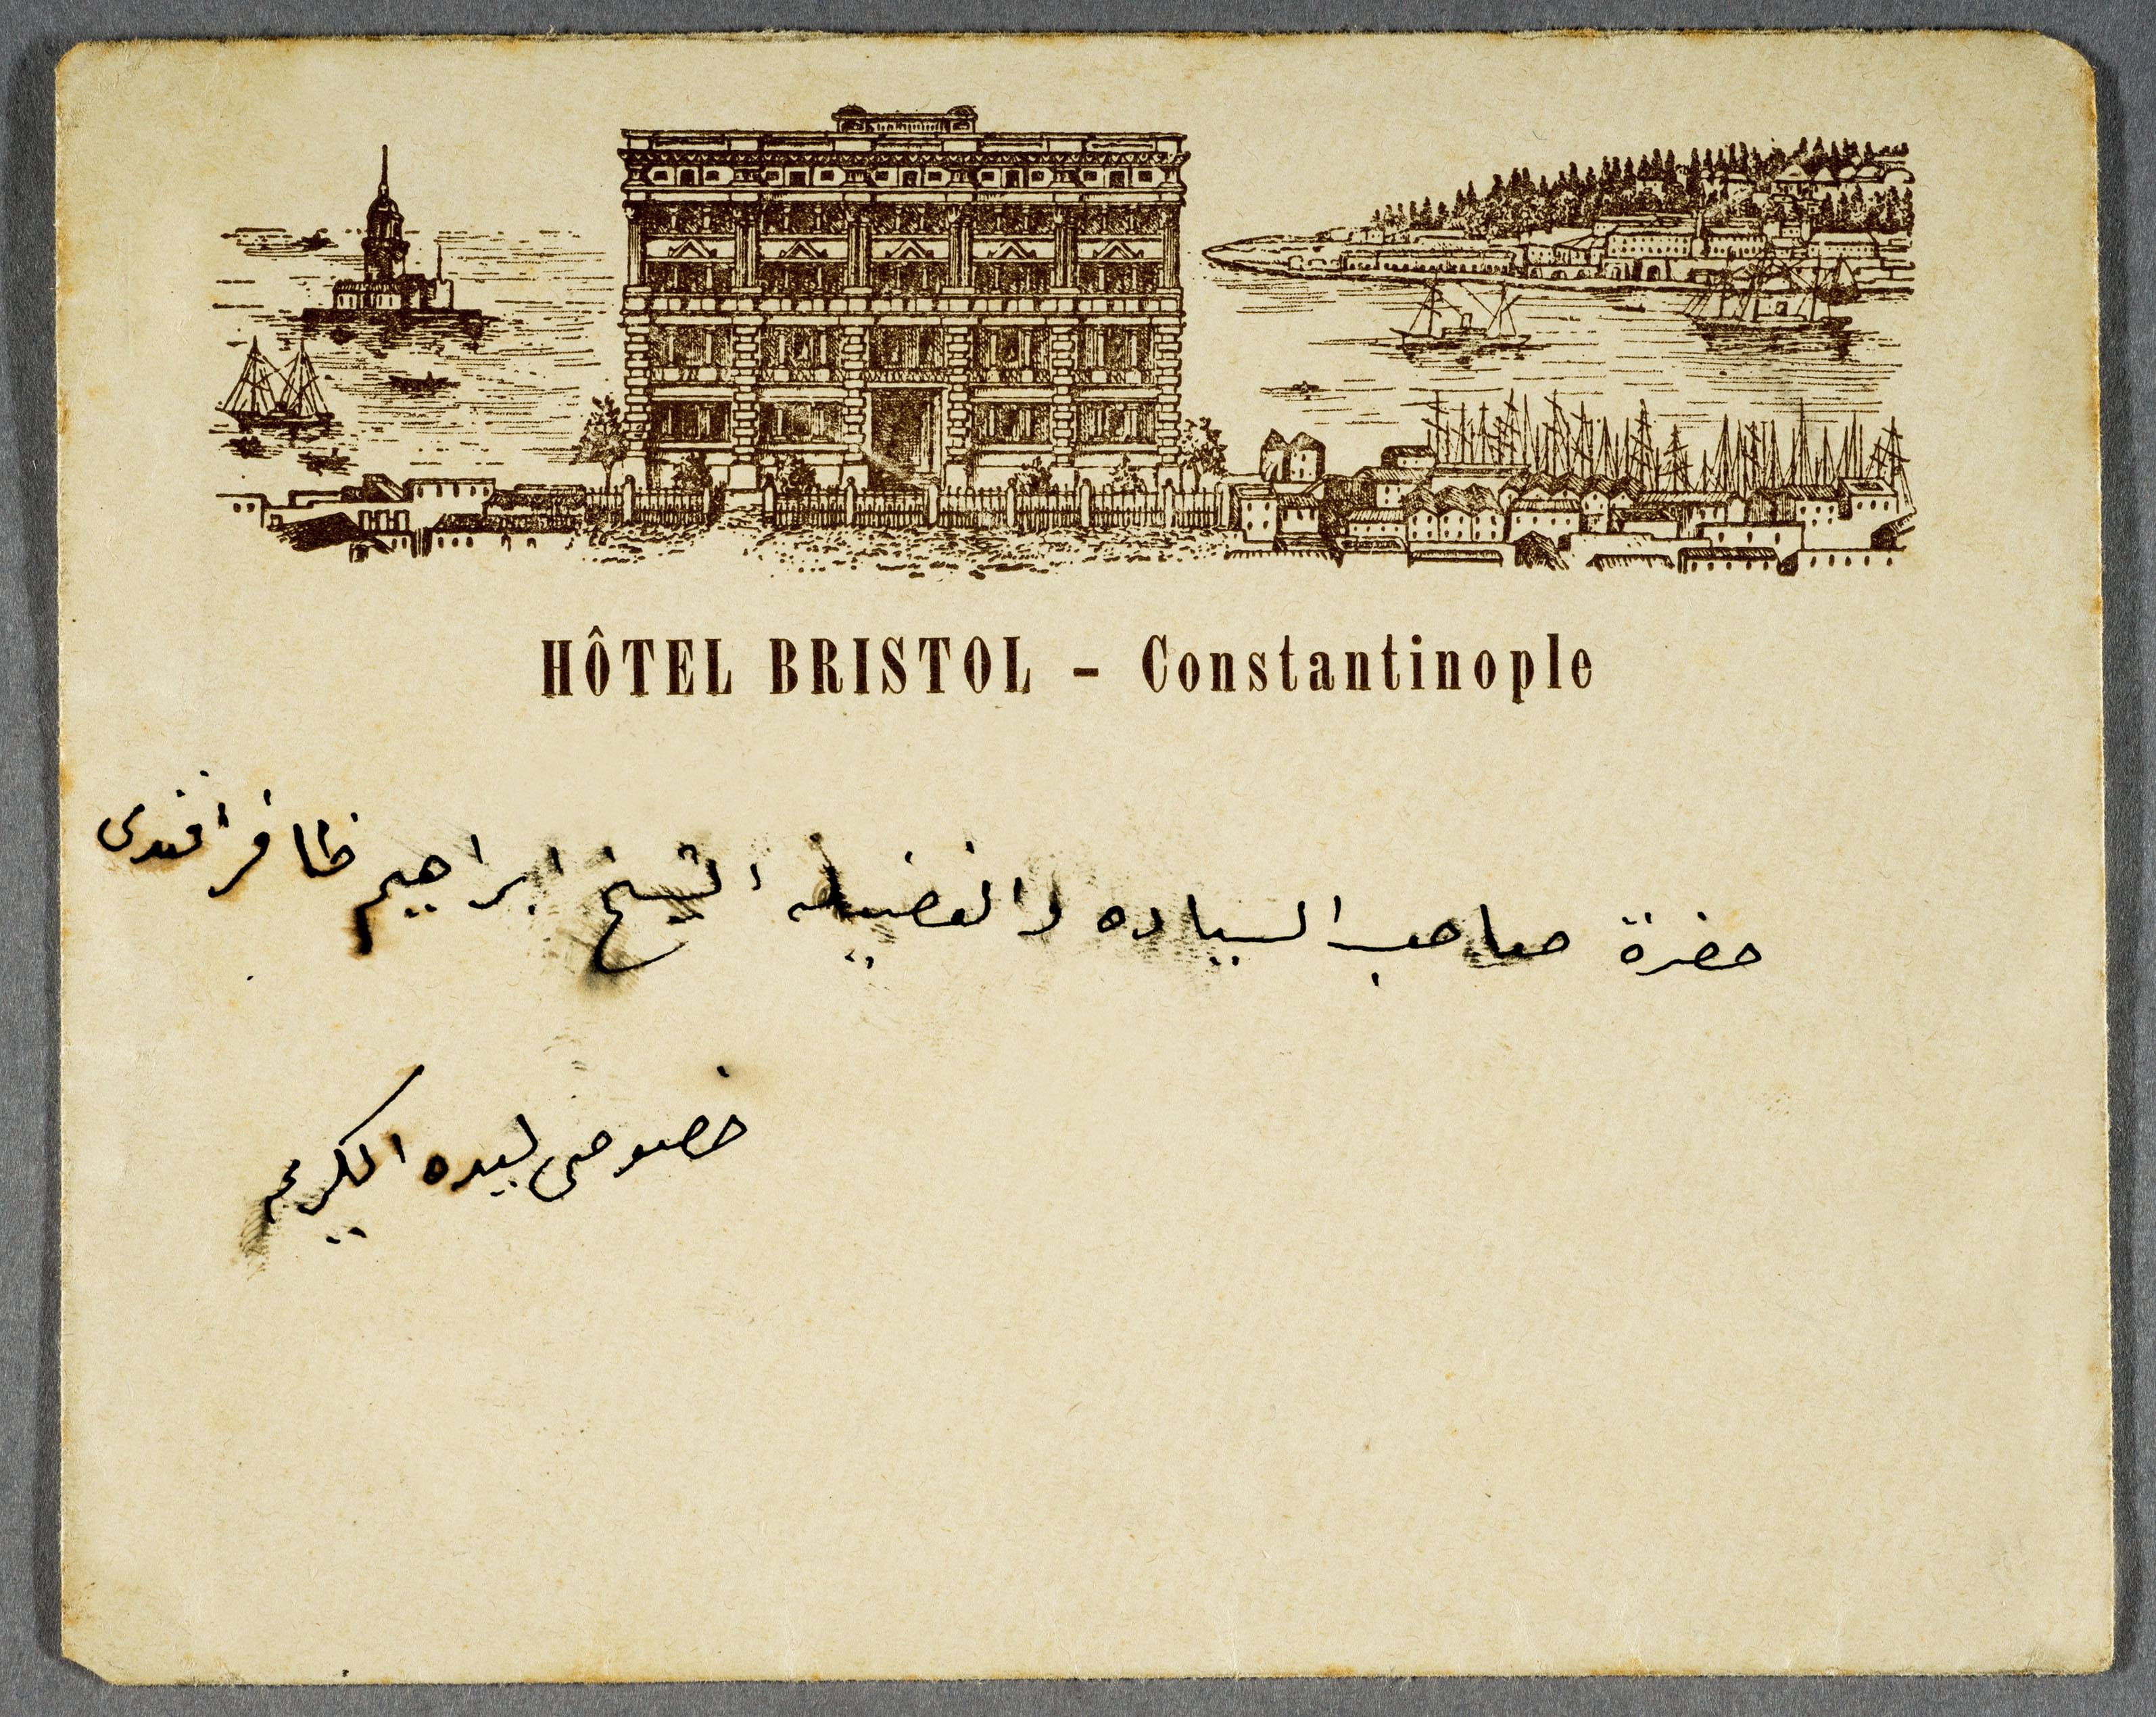 HÔTEL BRISTOL - Constantinople
حضرة صاحب السياده والفضيله الشيخ ابراهيم ظافر افندى
خصوصى ليده الكريم